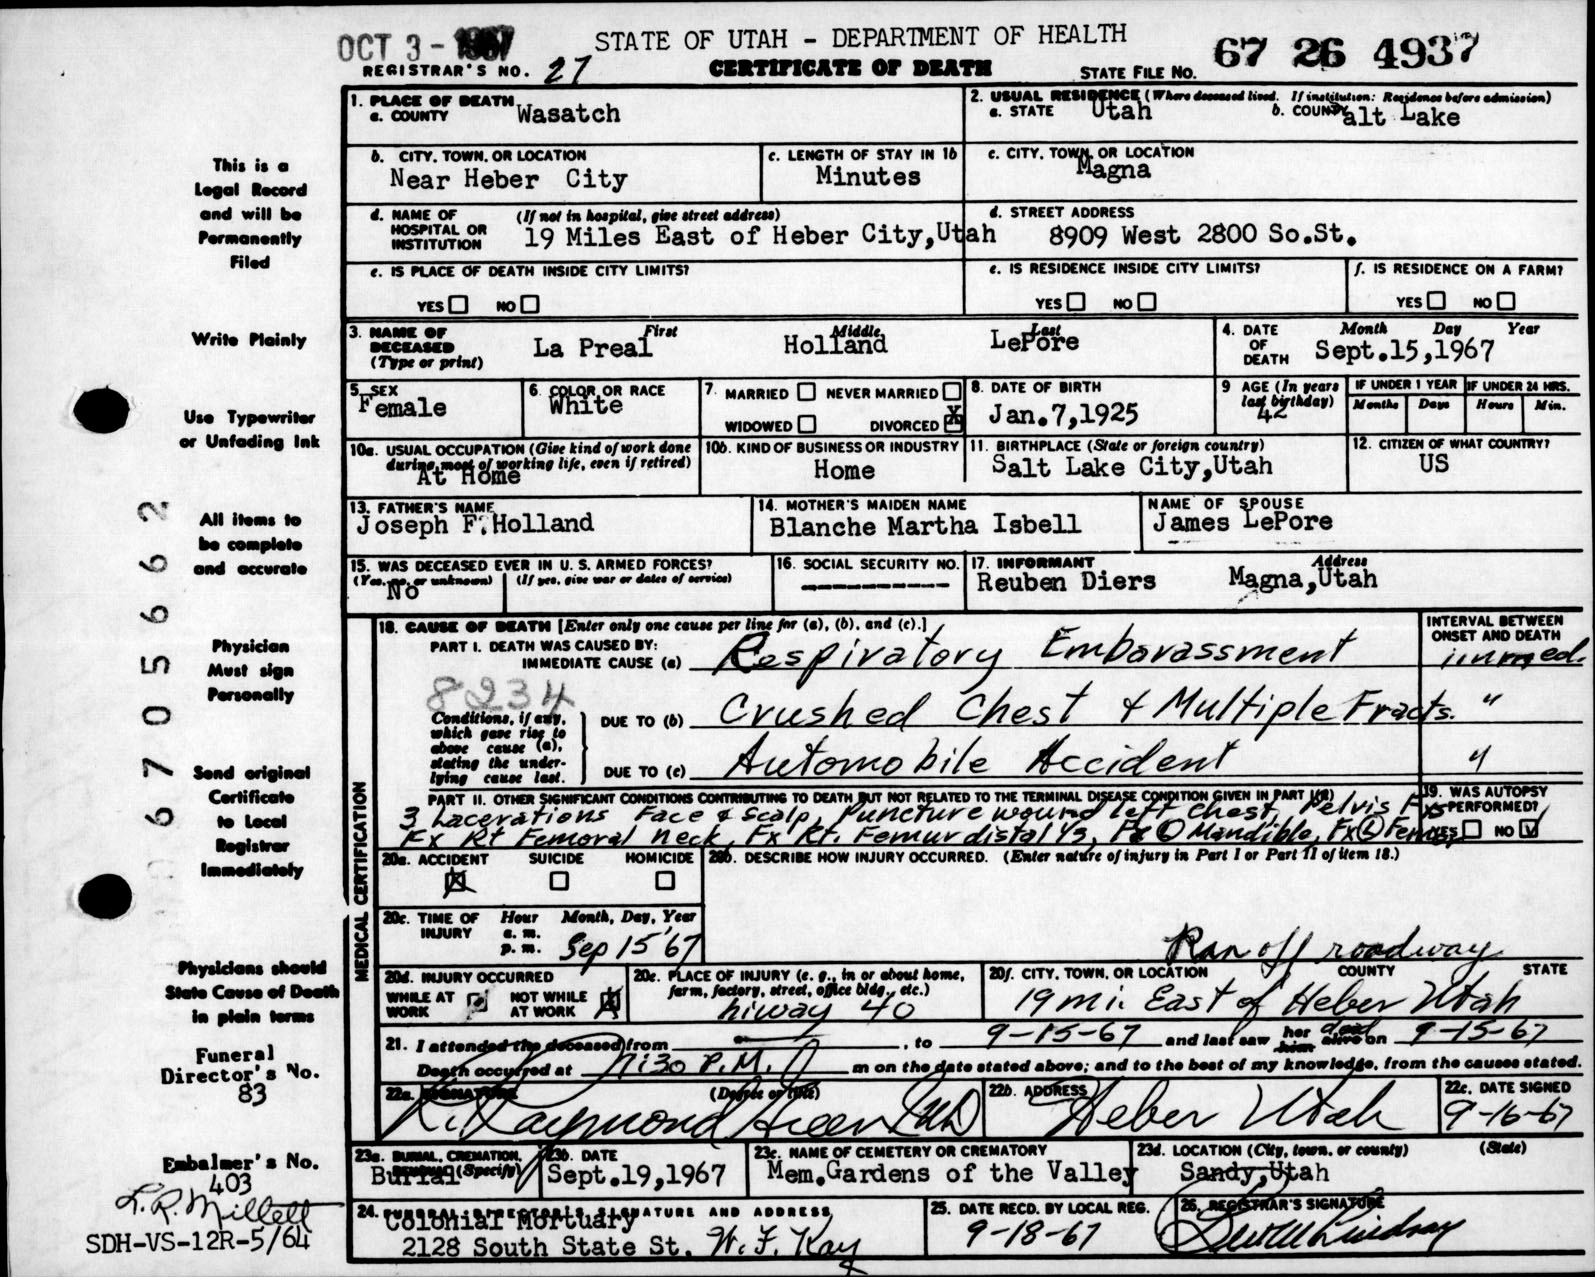 OCT 3 - 1967
STATE OF UTAH - DEPARTMENT OF HEALTH
67 26 4937
REGISTRAR'S NO. 27
CERTIFICATE OF DEATH
STATE FILE NO.
This is a
Legal Record
and will be
Permanently
Filed
Write Plainly
Use Typewriter
or Unfading Ink
All items to
be complete
and accurate
Physician
Must sign
Personally
Send original
Certificate
to Local
Registrar
Immediately
Physicians should
State Cause of Death
in plain terms
Funeral
Director's No.
83
Embalmer's No.
403
L. R. Millett
SDH-VS-12R-5/64
67056662
1. PLACE OF DEATH
a. COUNTY Wasatch
2. USUAL RESIDENCE (Where deceased lived. If institution: Residence before admission)
a. STATE Utah b. COUNTY alt Lake
b. CITY, TOWN, OR LOCATION
Near Heber City
c. LENGTH OF STAY IN 1b
Minutes
c. CITY, TOWN, OR LOCATION
Magna
d. NAME OF HOSPITAL OR INSTITUTION (If not in hospital, give street address)
19 Miles East of Heber City,Utah
d. STREET ADDRESS
8909 West 2800 So.St.
e. IS PLACE OF DEATH INSIDE CITY LIMITS?
YES NO
e. IS RESIDENCE INSIDE CITY LIMITS?
YES NO
f. IS RESIDENCE ON A FARM?
YES NO
3. NAME OF DECEASED (Type or print)
First Middle Last
La Preal Holland LePore
4. DATE OF DEATH
Month Day Year
Sept.15,1967
5. SEX
Female
6. COLOR OR RACE
White
7. MARRIED NEVER MARRIED
WIDOWED DIVORCED X
8. DATE OF BIRTH
Jan.7,1925
9 AGE (In years last birthday)
42
IF UNDER 1 YEAR
Months Days
IF UNDER 24 HRS.
Hours Min.
10a. USUAL OCCUPATION (Give kind of work done during most of working life, even if retired)
At Home
10b. KIND OF BUSINESS OR INDUSTRY
Home
11. BIRTHPLACE (State or foreign country)
Salt Lake City,Utah
12. CITIZEN OF WHAT COUNTRY?
US
13. FATHER'S NAME
Joseph F.Holland
14. MOTHER'S MAIDEN NAME
Blanche Martha Isbell
NAME OF SPOUSE
James LePore
15. WAS DECEASED EVER IN U. S. ARMED FORCES?
(Yes, no, or unknown) (If yes, give war or dates of service)
No
16. SOCIAL SECURITY NO.
17. INFORMANT Address
Reuben Diers Magna,Utah
MEDICAL CERTIFICATION
18. CAUSE OF DEATH [Enter only one cause per line for (a), (b), and (c).]
INTERVAL BETWEEN ONSET AND DEATH
PART I. DEATH WAS CAUSED BY:
IMMEDIATE CAUSE (a) Respiratory Embarassment immed.
8234
Conditions, if any, which gave rise to above cause (a), stating the underlying cause last.
DUE TO (b) Crushed Chest & Multiple Fracts. "
DUE TO (c) Automobile Accident "
PART II. OTHER SIGNIFICANT CONDITIONS CONTRIBUTING TO DEATH BUT NOT RELATED TO THE TERMINAL DISEASE CONDITION GIVEN IN PART I(a)
3 Lacerations Face & Scalp, Puncture wound left Chest, Pelvis Fxs
Fx Rt Femoral neck, Fx Rt. Femur distal 1/3, Fx L Mandible, Fx L Femur
19. WAS AUTOPSY PERFORMED?
YES NO
20a. ACCIDENT SUICIDE HOMICIDE
20b. DESCRIBE HOW INJURY OCCURRED. (Enter nature of injury in Part I or Part II of item 18.)
Ran off roadway
20c. TIME OF INJURY
Hour Month, Day, Year
a. m.
p. m. Sep 15 '67
20d. INJURY OCCURRED
WHILE AT WORK NOT WHILE AT WORK
20e. PLACE OF INJURY (e. g., in or about home, farm, factory, street, office bldg., etc.)
hiway 40
20f. CITY, TOWN, OR LOCATION COUNTY STATE
19 mi. East of Heber Utah
21. I attended the deceased from , to 9-15-67 and last saw her him dead alive on 9-15-67
Death occurred at 7:30 P.M. m on the date stated above; and to the best of my knowledge, from the causes stated.
22a. SIGNATURE (Degree or title)
R. Raymond Green MD
22b. ADDRESS
Heber Utah
22c. DATE SIGNED
9-16-67
23a. BURIAL, CREMATION, REMOVAL (Specify)
Burial
23b. DATE
Sept.19,1967
23c. NAME OF CEMETERY OR CREMATORY
Mem.Gardens of the Valley
23d. LOCATION (City, town, or county) (State)
Sandy,Utah
24. FUNERAL DIRECTOR'S SIGNATURE AND ADDRESS
Colonial Mortuary
2128 South State St. W. F. Kay
25. DATE RECD. BY LOCAL REG.
9-18-67
26. REGISTRAR'S SIGNATURE
Lindsay